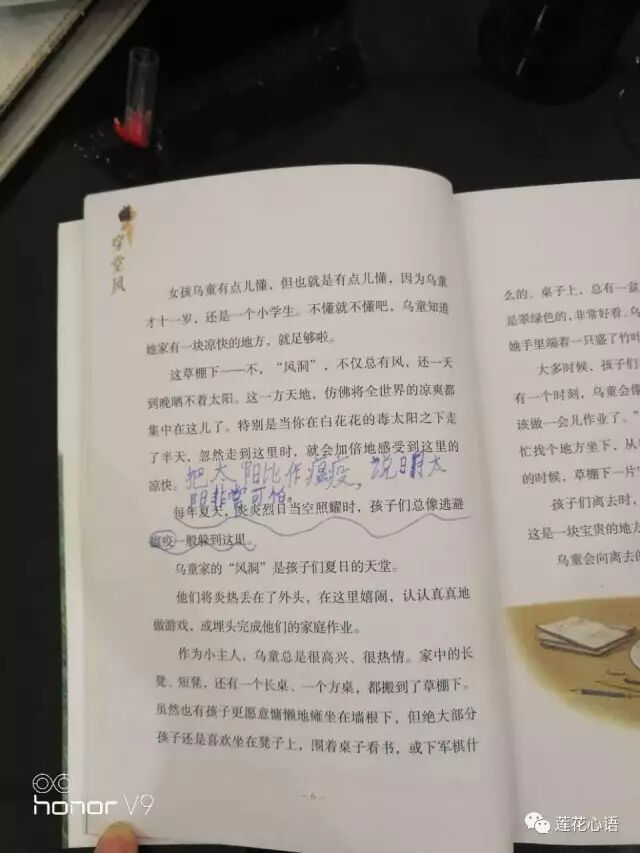 穿堂风
女孩乌童有点儿懂，但也就是有点儿懂，因为乌童
才十一岁，还是一个小学生。不懂就不懂吧，乌童知道
她家有一块凉快的地方，就足够啦。
这草棚下——不，“风洞”，不仅总有风，还一天
到晚晒不着太阳。这一方天地，仿佛将全世界的凉爽都
集中在这儿了。特别是当你在白花花的毒太阳之下走
了半天，忽然走到这里时，就会加倍地感受到这里的
凉快。
把太阳比作瘟疫，说明太
阳非常可怕
每年夏天，炎炎烈日当空照耀时，孩子们总像逃避
瘟疫一般躲到这里。
乌童家的“风洞”是孩子们夏日的天堂。
他们将炎热丢在了外头，在这里嬉闹，认认真真地
做游戏，或埋头完成他们的家庭作业。
作为小主人，乌童总是很高兴、很热情。家中的长
凳、短凳，还有一个长桌、一个方桌，都搬到了草棚下。
虽然也有孩子更愿意慵懒地瘫坐在墙根下，但绝大部分
孩子还是喜欢坐在凳子上，围着桌子看书，或下军棋什
- 6 -
么的。桌子上，总有一盆
是翠绿色的，非常好看。乌
她手里端着一只盛了竹叶
大多时候，孩子们
有一个时刻，乌童会像
该做一会儿作业了。”
忙找个地方坐下，从
的时候，草棚下一片
孩子们离去时，
这是一块宝贵的地方
乌童会向离去的
honor V9
莲花心语